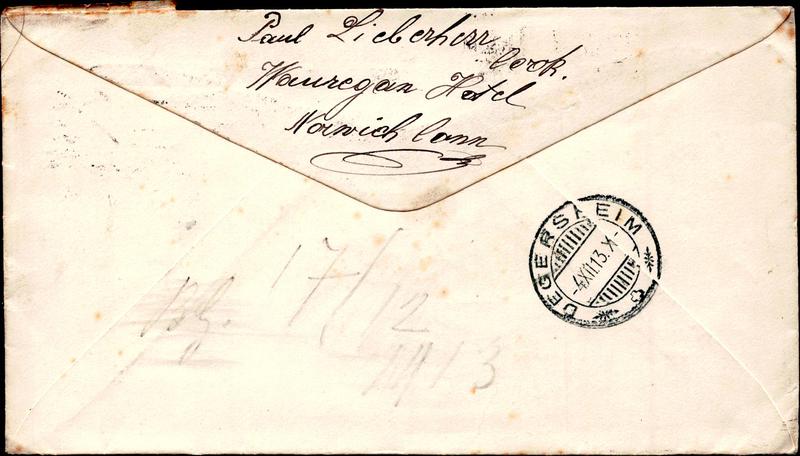 Paul Lieberherr
Cook.
Wauregan Hotel
Norwich Conn
DEGERSHEIM
-4.XII.13.X-
17/12
1913